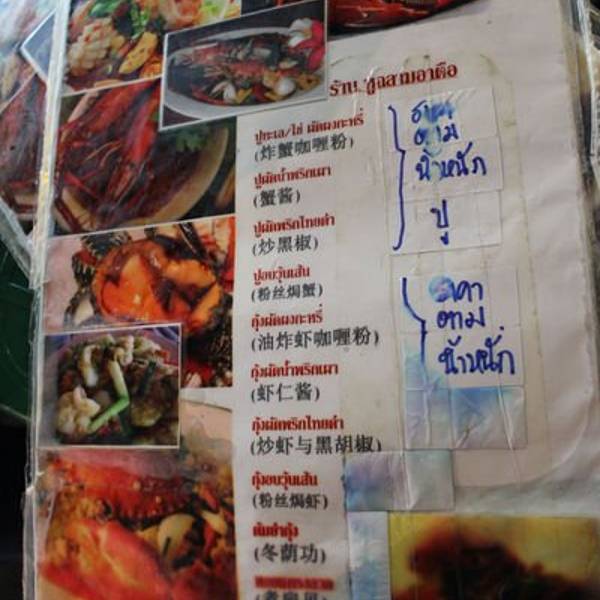 ร้าน
ปูทะเล/ไข่ ผัดผงกะหรี่
(炸蟹咖喱粉)
ปูผัดน้ำพริกเผา
(蟹酱)
ปูผัดพริกไทยดำ
(炒黑椒)
ปูอบวุ้นเส้น
(粉丝焗蟹)
กุ้งผัดผงกะหรี่
(油炸虾咖喱粉)
กุ้งผัดน้ำพริกเผา
(虾仁酱)
กุ้งผัดพริกไทยดำ
(炒虾与黑胡椒)
กุ้งอบวุ้นเส้น
(粉丝焗虾)
ต้มยำกุ้ง
(冬荫功)
ตาม
น้ำหนัก
ปู
ราคา
ตาม
น้ำหนัก